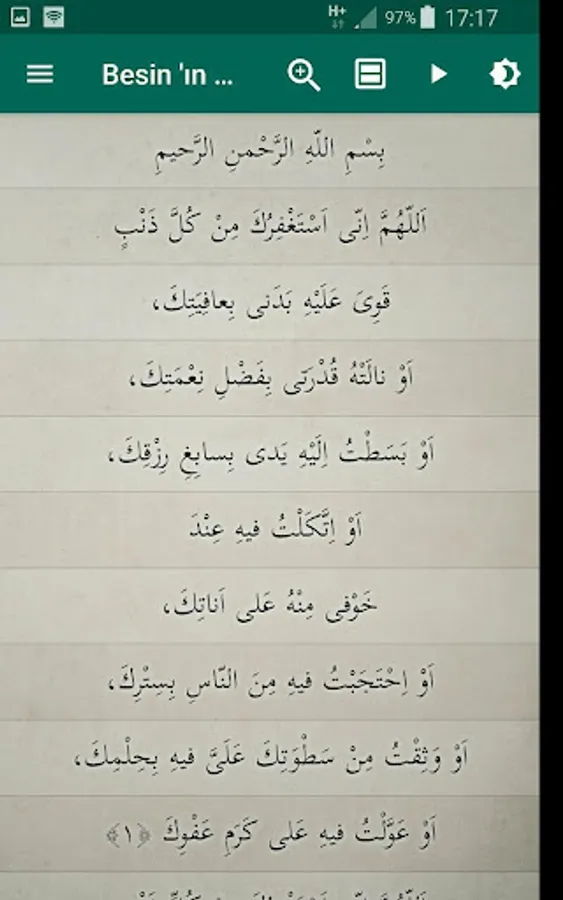 H+ 97% 17:17
Besin 'ın ...
بِسْمِ اللّهِ الرَّحْمنِ الرَّحيمِ
اَللّهُمَّ اِنّى اَسْتَغْفِرُكَ مِنْ كُلَّ ذَنْبٍ
قَوِىَ عَلَيْهِ بَدَنى بِعافِيَتِكَ،
اَوْ نالَتْهُ قُدْرَتى بِفَضْلِ نِعْمَتِكَ،
اَوْ بَسَطْتُ اِلَيْهِ يَدى بِسابِغِ رِزْقِكَ،
اَوْ اِتَّكَلْتُ فيهِ عِنْدَ
خَوْفى مِنْهُ عَلى اَناتِكَ،
اَوْ اِحْتَجَبْتُ فيهِ مِنَ النّاسِ بِسِتْرِكَ،
اَوْ وَثِقْتُ مِنْ سَطْوَتِكَ عَلَىَّ فيهِ بِحِلْمِكَ،
اَوْ عَوَّلْتُ فيهِ عَلى كَرَمِ عَفْوِكَ ﴿١﴾